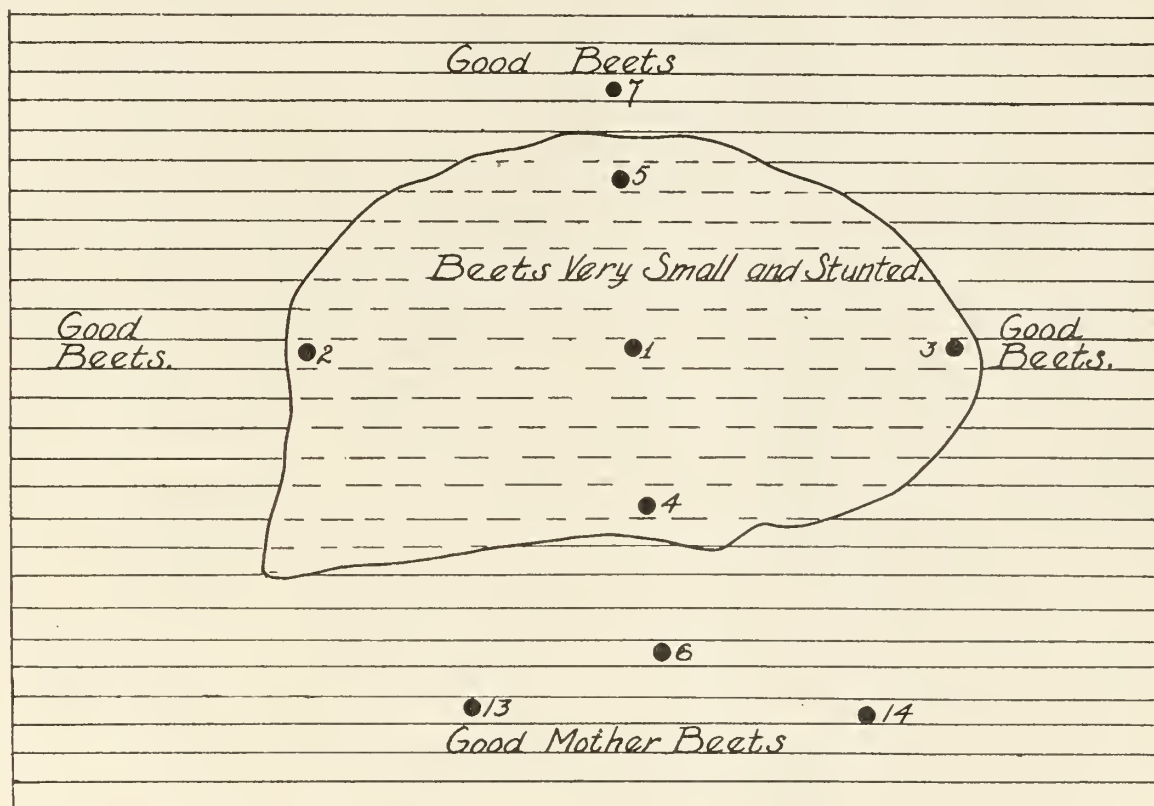 Good Beets
7
5
Beets Very Small and Stunted.
Good
Beets.
2
1
3
Good
Beets.
4
6
13
14
Good Mother Beets